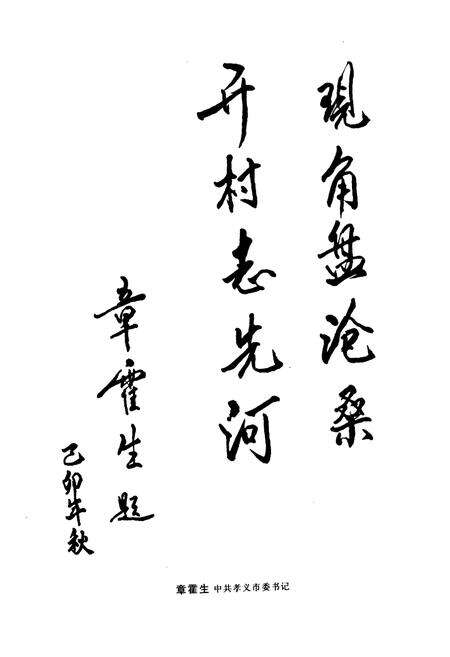 现角盘沧桑
开村志先河
章霍生题
己卯年秋
章霍生 中共孝义市委书记